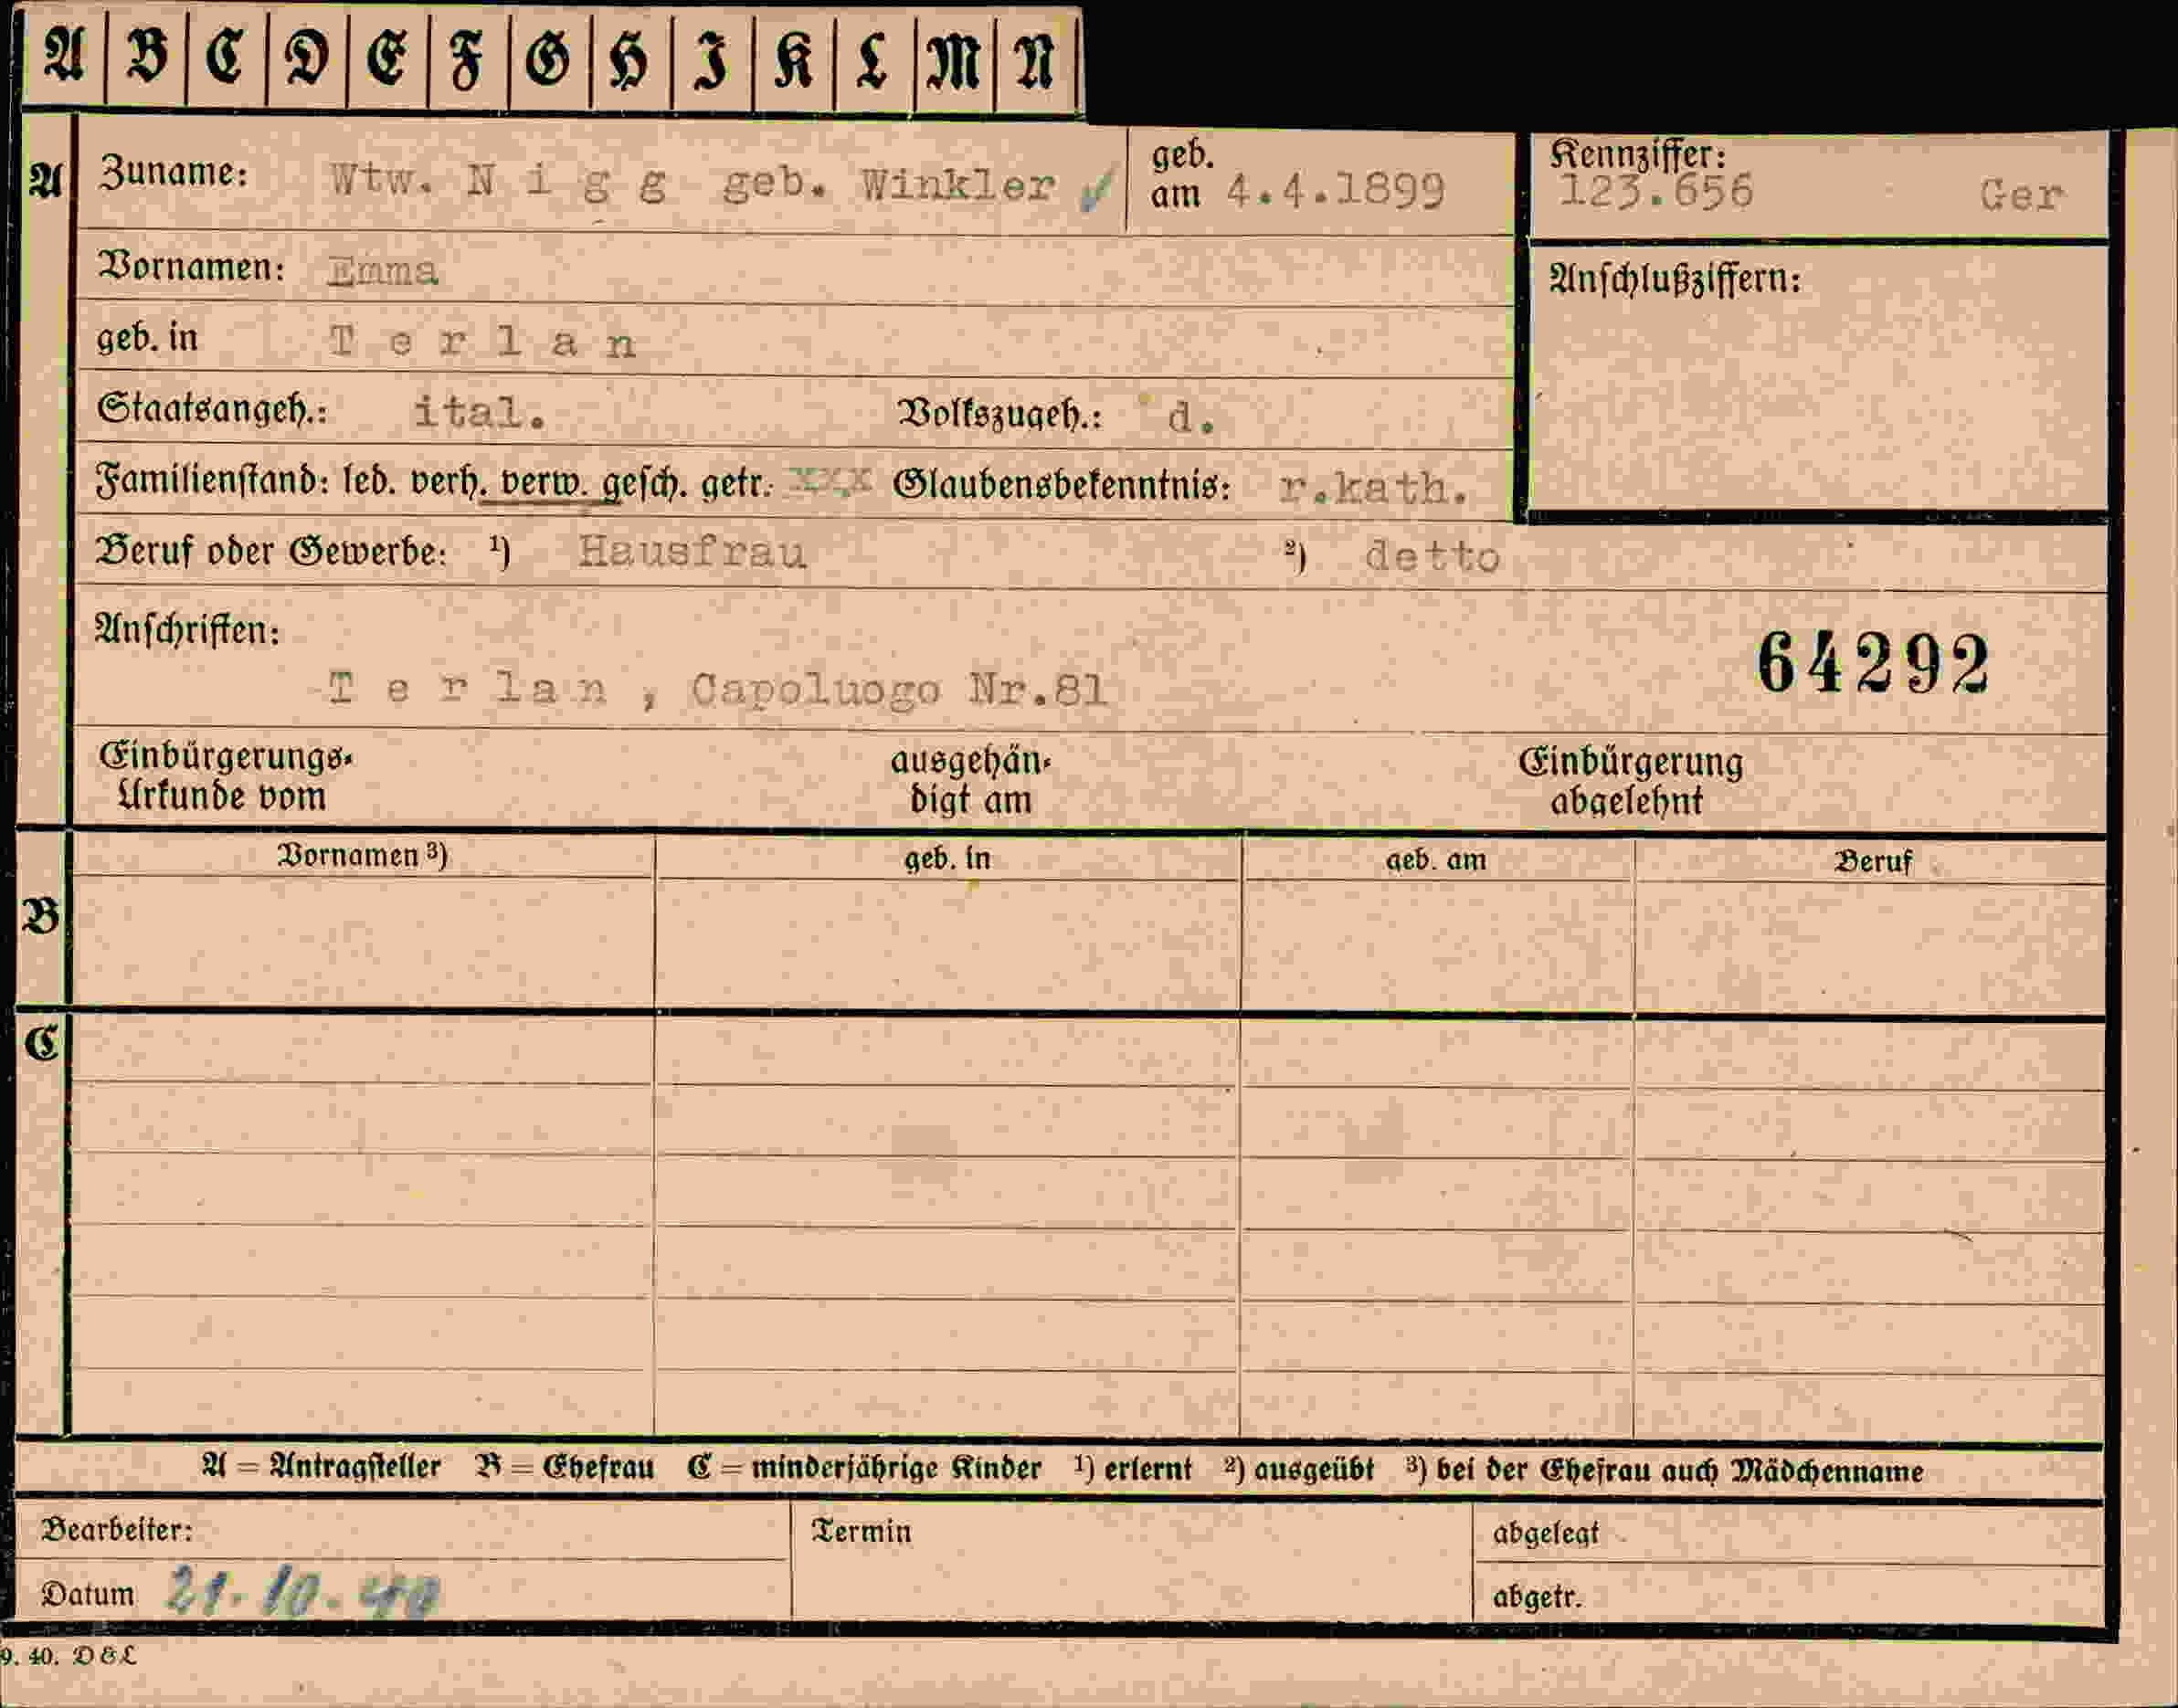 A B C D E F G H I K L M N
A Zuname: Wtw. N i g g geb. Winkler geb. am 4.4.1899 Kennziffer: 123.656 Ger
Vornamen: Emma
Anschlußziffern:
geb. in T e r l a n
Staatsangeh.: ital. Volkszugeh.: d.
Familienstand: led. verh. verw. gesch. getr. xxx Glaubensbekenntnis: r.kath.
Beruf oder Gewerbe: ¹) Hausfrau ²) detto
Anschriften:
64292
T e r l a n , Capoluogo Nr.81
Einbürgerungs- ausgehän- Einbürgerung
Urkunde vom digt am abgelehnt
Vornamen ³) geb. in geb. am Beruf
B
C
A = Antragsteller B = Ehefrau C = minderjährige Kinder ¹) erlernt ²) ausgeübt ³) bei der Ehefrau auch Mädchenname
Bearbeiter: Termin abgelegt
Datum 21.10.40 abgetr.
9. 40. D & L